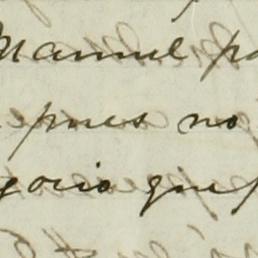 Manuel pa
pues no
gocio que